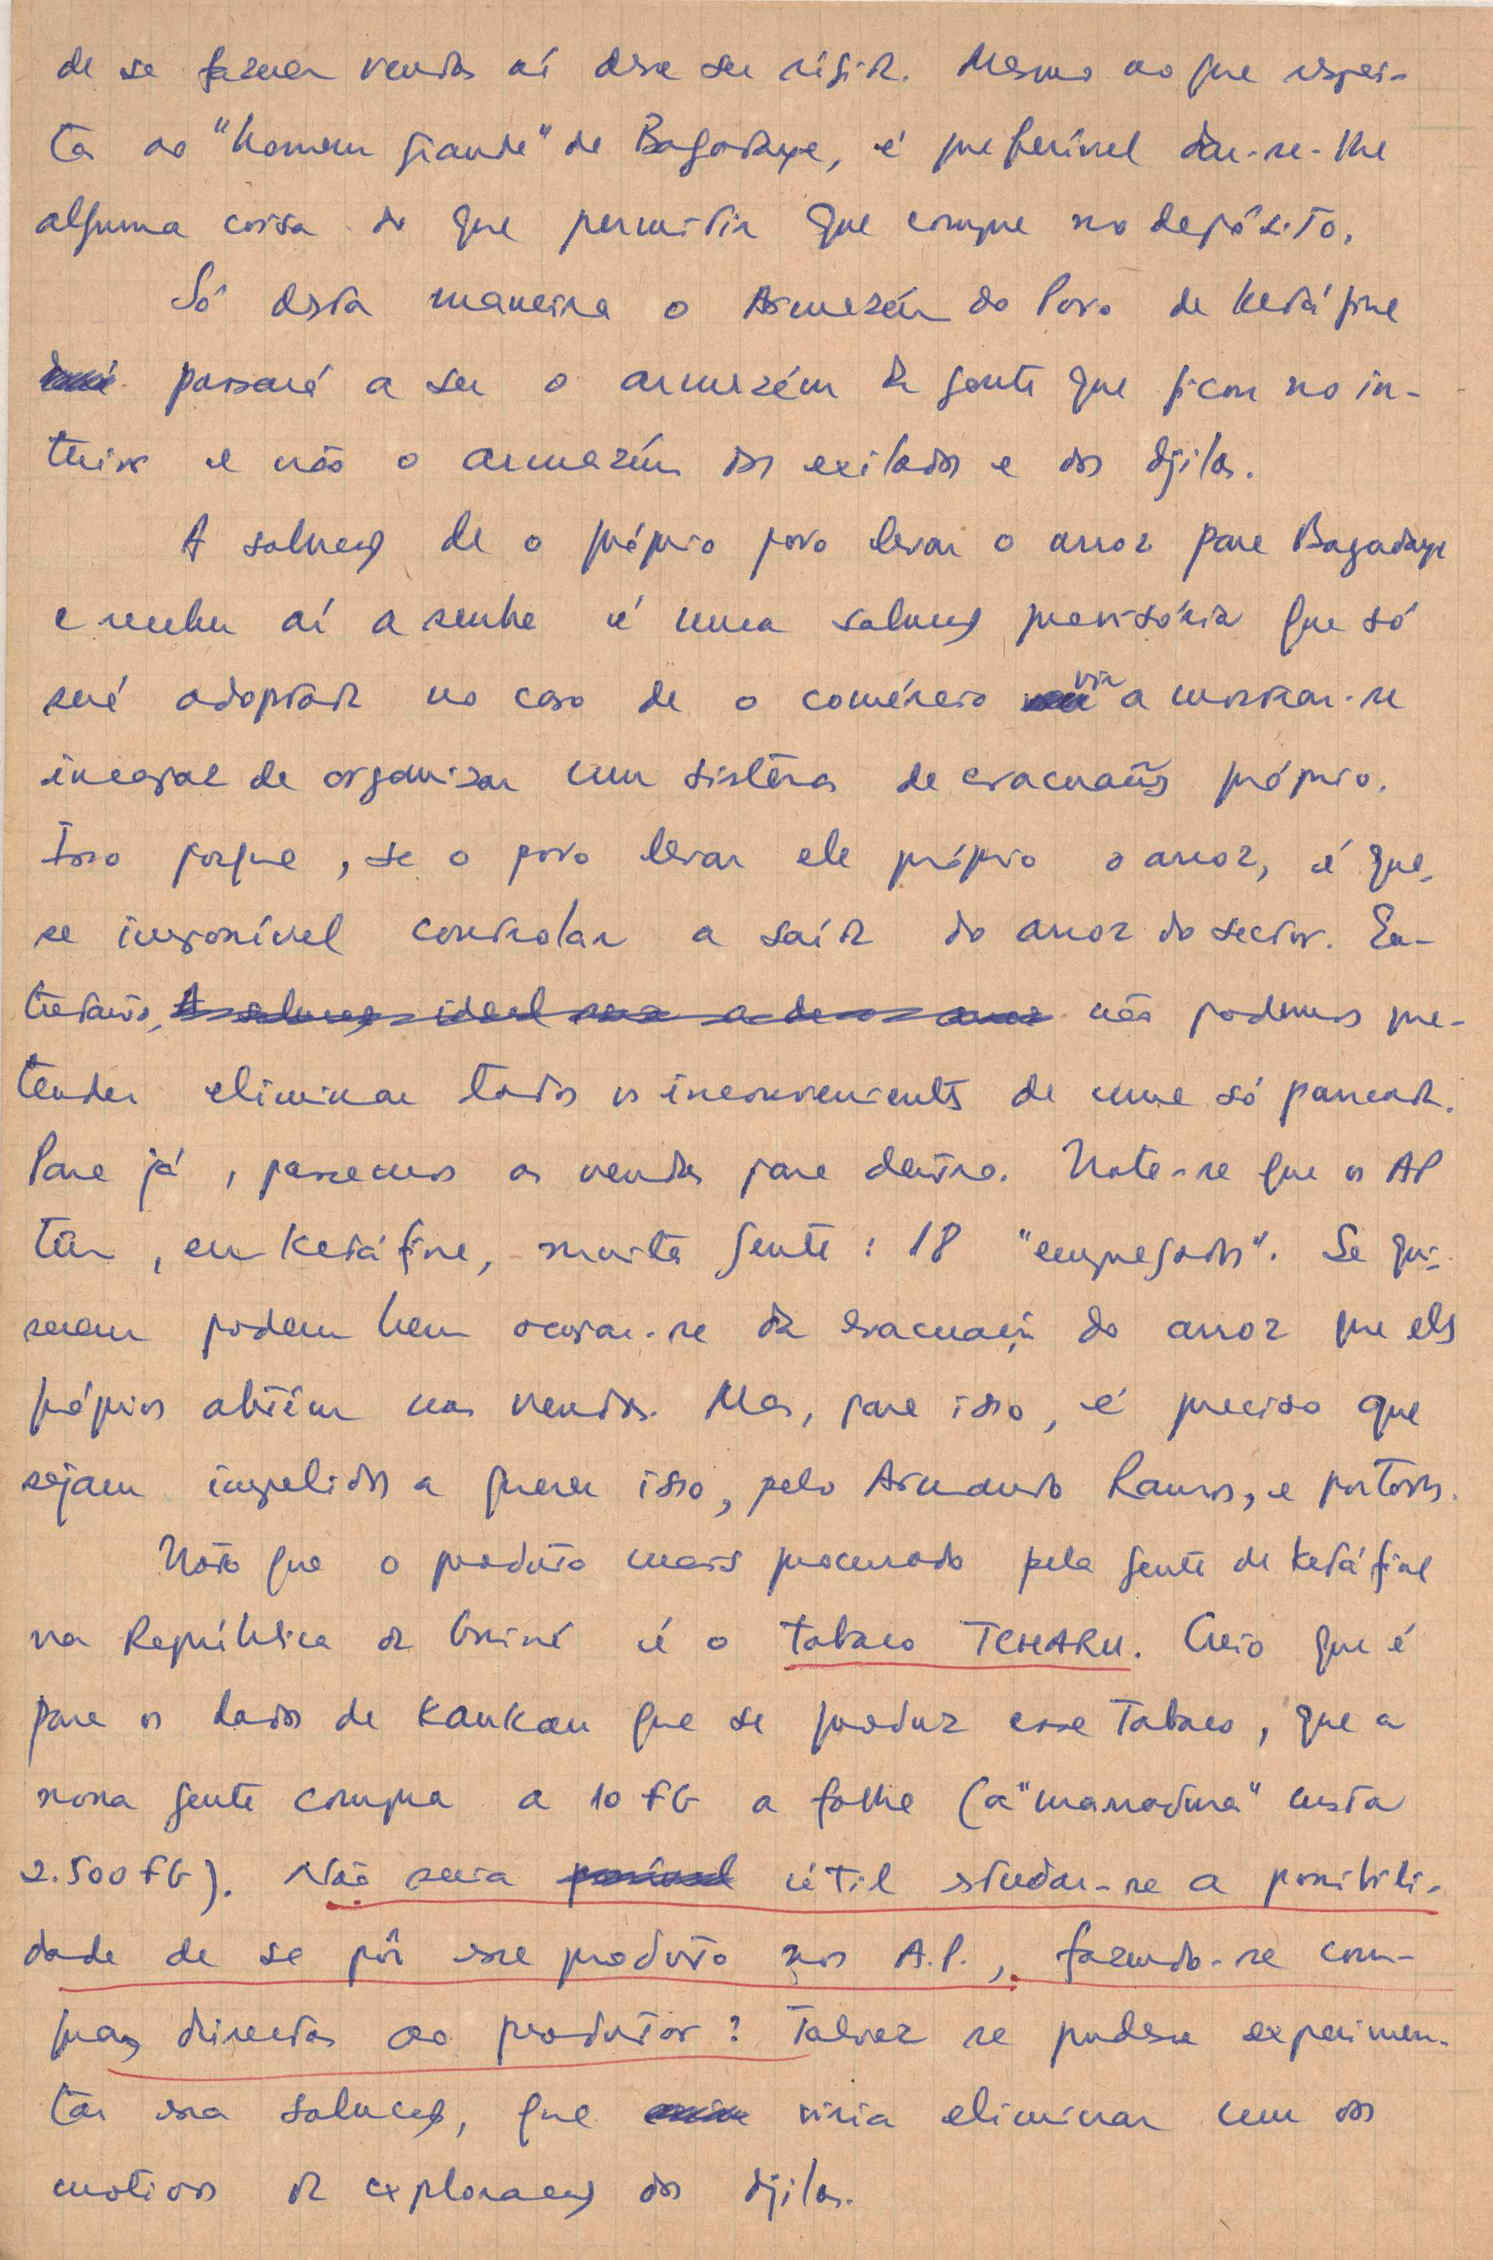 de se fazerem vendas aí deve ser rígida. Mesmo no que respei-
ta ao "homem grande" de Bagadaye, é preferível dar-se-lhe
alguma coisa do que permitir que compre no depósito.
Só desta maneira o Armazém do Povo de Ketáfine
passará a ser o armazém da gente que ficou no in-
terior e não o armazém dos exilados e dos djilas.
A solução de o próprio povo levar o arroz para Bagadaye
e receber aí a senha é uma solução provisória que só
será adoptada no caso de o comércio vir a mostrar-se
incapaz de organizar um sistema de evacuação próprio.
Isso porque, se o povo levar ele próprio o arroz, é qua-
se impossível controlar a saída do arroz do sector. En-
tretanto, A solução ideal seria a de o arroz não podemos pre-
tender eliminar todos os inconvenientes de uma só pancada.
Para já, passemos as vendas para dentro. Note-se que os AP
têm, em Ketáfine, muita gente: 18 "empregados". Se qui-
serem podem bem ocupar-se da evacuação do arroz que eles
próprios obtêm nas vendas. Mas, para isso, é preciso que
sejam impelidos a querer isso, pelo Armando Ramos, e portos.
Noto que o produto mais procurado pela gente de Ketáfine
na República da Guiné é o tabaco TCHARU. Creio que é
para os lados de Kankan que se produz esse tabaco, que a
nossa gente compra a 10 FG a folha (a "marradura" custa
2.500 FG). Não seria possível útil estudar-se a possibili-
dade de se pôr esse produto nos A.P., fazendo-se com-
pras directas ao produtor? Talvez se pudesse experimen-
tar essa solução, que viria eliminar um dos
motivos da exploração dos djilas.